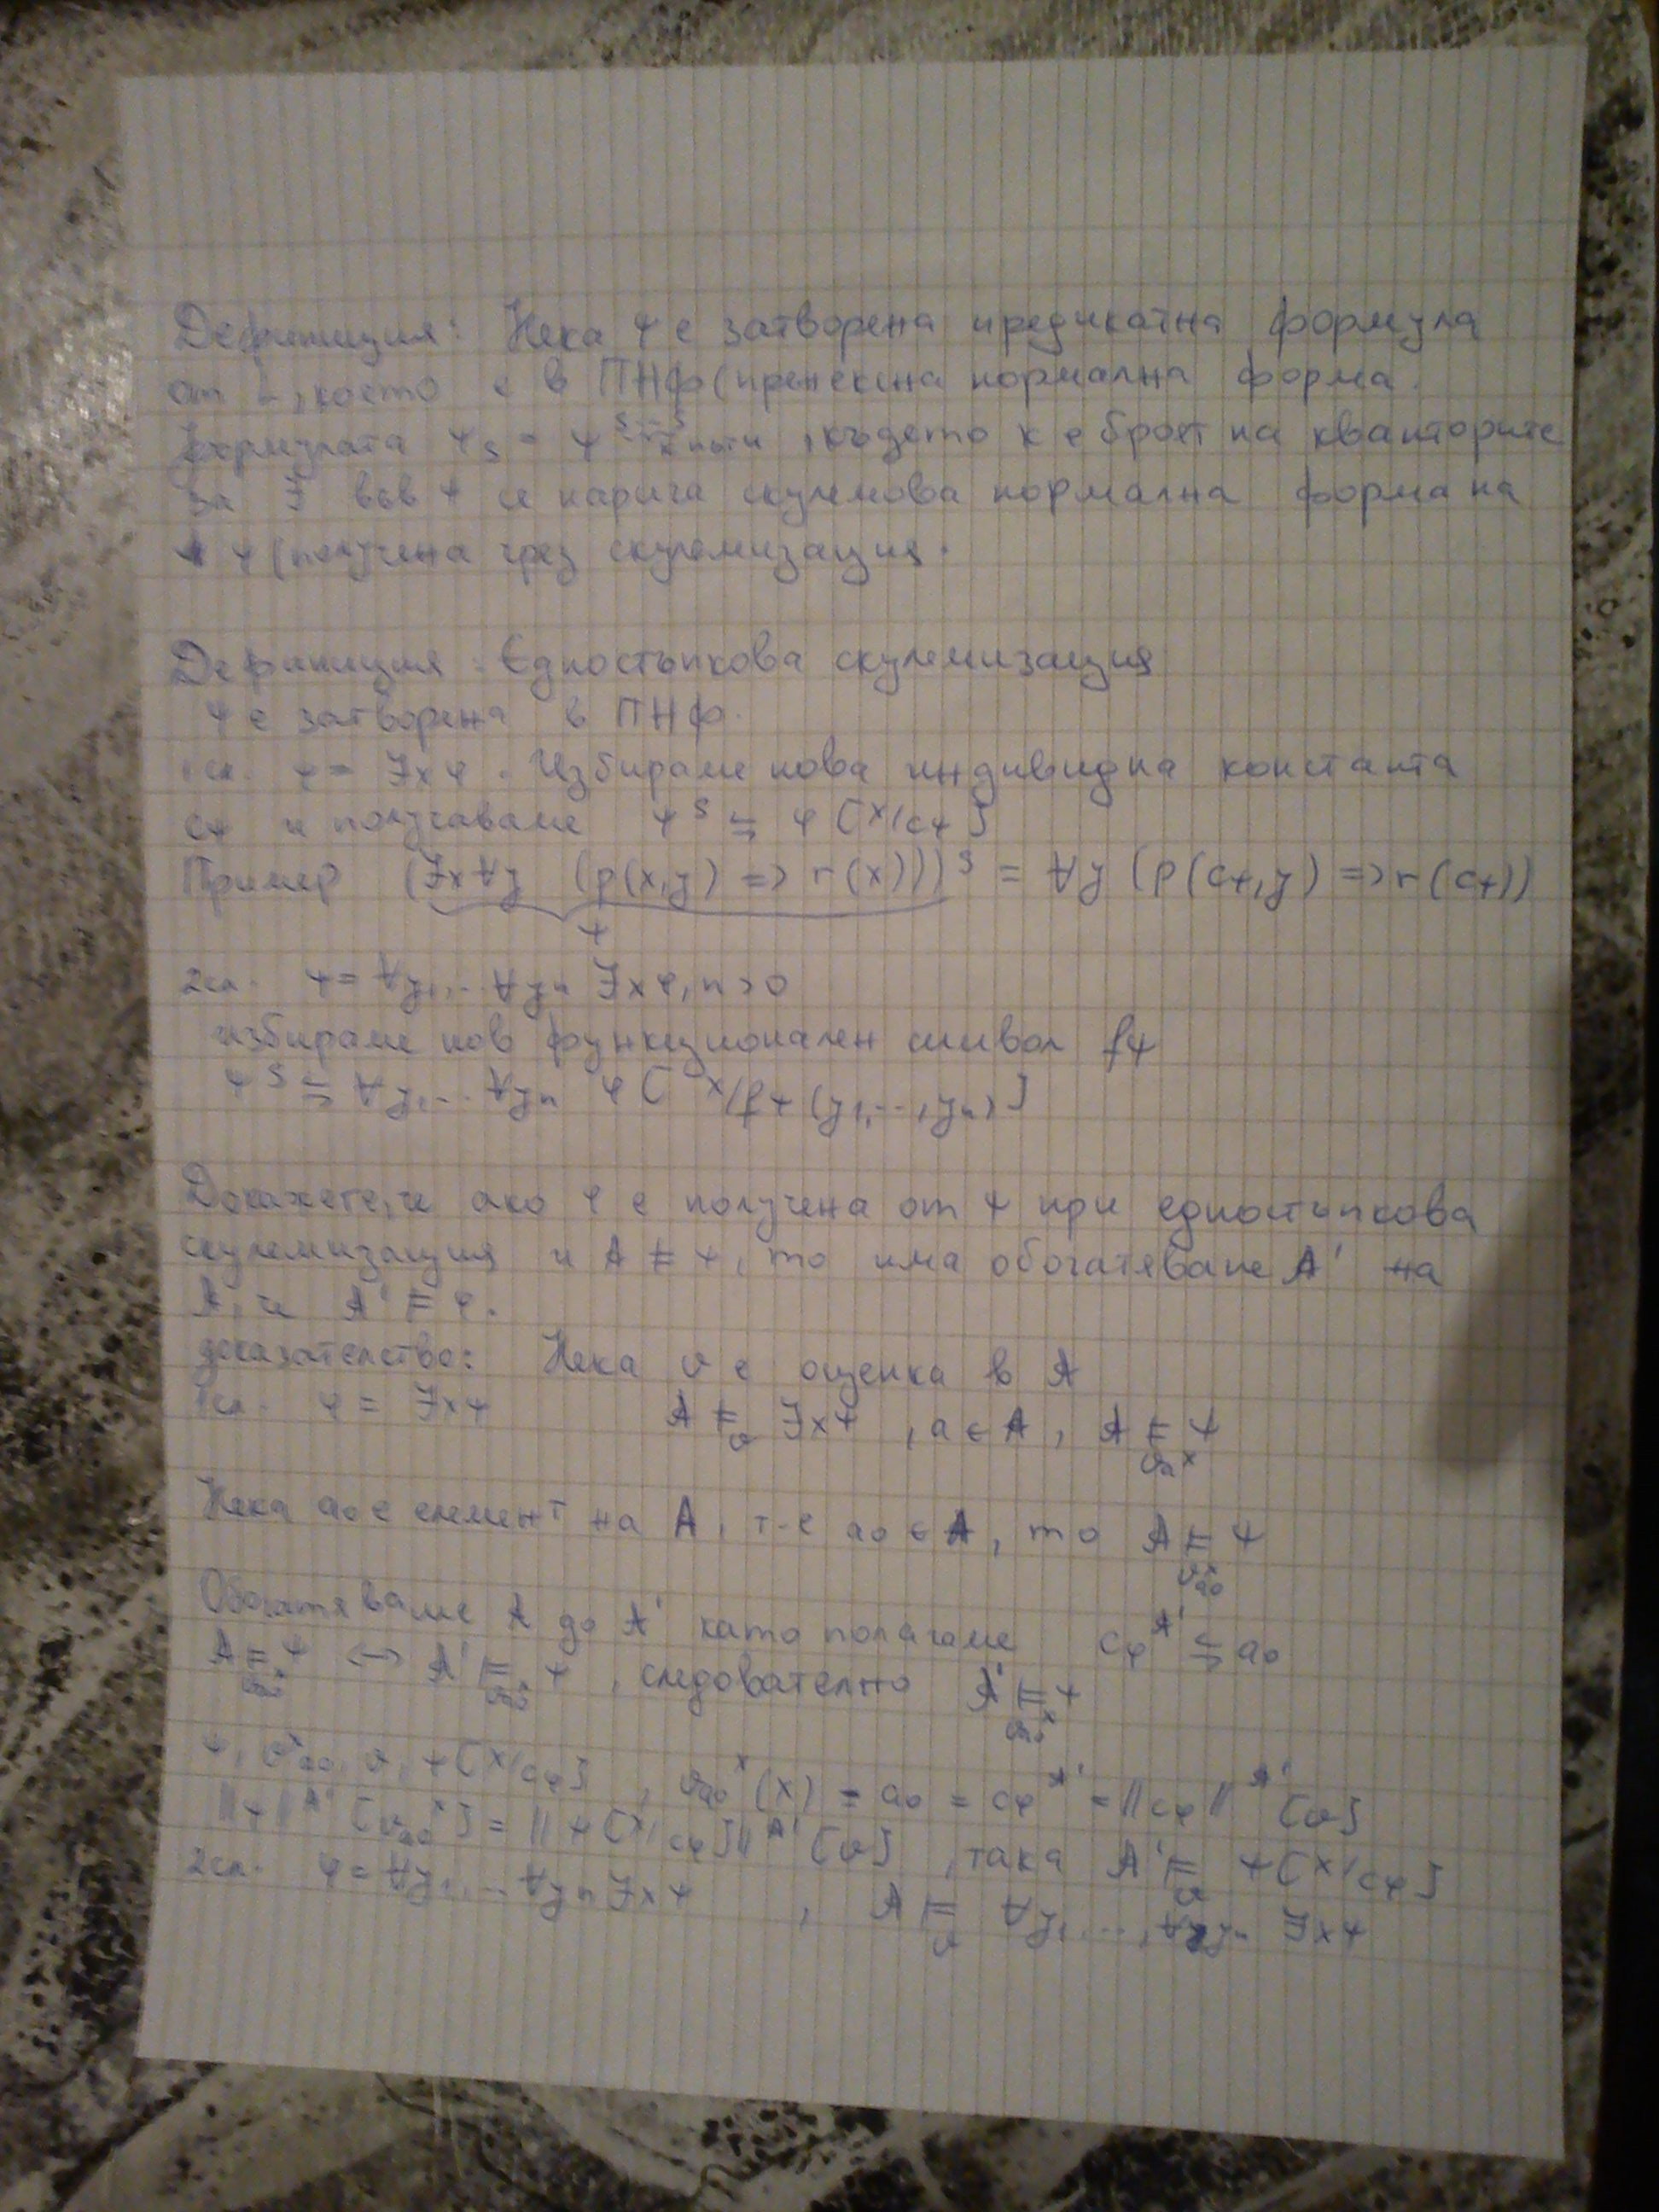 Дефиниция: Нека ψ е затворена предикатна формула
от L, която е в ПНФ (пренексна нормална форма.
Формулата ψ_S = ψ^{S...S} k пъти, където k е броят на кванторите
за ∃ във ψ се нарича скулемова нормална форма на
ψ (получена чрез скулемизация.
Дефиниция: Едностъпкова скулемизация
ψ е затворена в ПНФ.
1сл. ψ = ∃xφ. Избираме нова индивидна константа
cψ и получаваме ψ^S ⇋ φ[x/cψ]
Пример (∃x∀y (p(x,y) => r(x)))^S = ∀y (p(cψ,y) => r(cψ))
ψ
2сл. ψ = ∀y1...∀yn ∃xφ, n>0
избираме нов функционален символ fψ
ψ^S ⇋ ∀y1...∀yn φ[x/fψ(y1,...,yn)]
Докажете, че ако φ е получена от ψ при едностъпкова
скулемизация и A ⊨ ψ, то има обогатяване A' на
A, че A' ⊨ φ.
доказателство: Нека v е оценка в A
1сл. φ = ∃xψ A ⊨_v ∃xψ, a ∈ A, A ⊨_{v_a^x} ψ
Нека a0 е елемент на A, т-е a0 ∈ A, то A ⊨_{v_{a0}^x} ψ
Обогатяваме A до A' като полагаме cφ^{A'} ⇋ a0
A ⊨_{v_{a0}^x} ψ <-> A' ⊨_{v_{a0}^x} ψ, следователно A' ⊨_{v_{a0}^x} ψ
ψ, v_{a0}^x, v, ψ[x/cφ], v_{a0}^x(x) = a0 = cφ^{A'} = ||cφ||^{A'}[v]
||ψ||^{A'}[v_{a0}^x] = ||ψ[x/cφ]||^{A'}[v], така A' ⊨_v ψ[x/cφ]
2сл. φ = ∀y1,...∀yn∃xψ, A ⊨_v ∀y1,...,∀yn ∃xψ